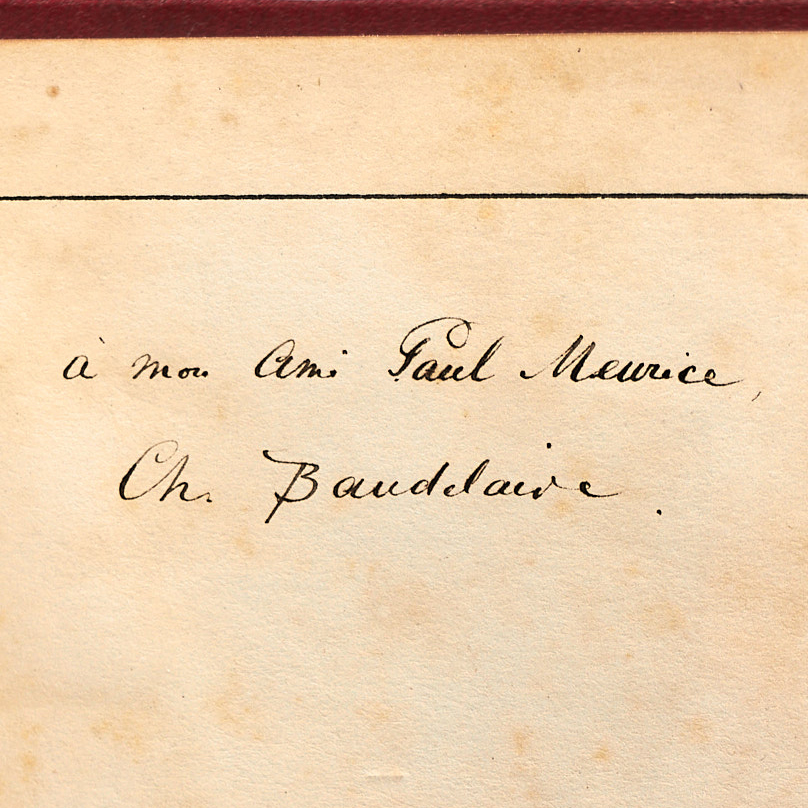 à mon Ami Paul Meurice,
Ch. Baudelaire.